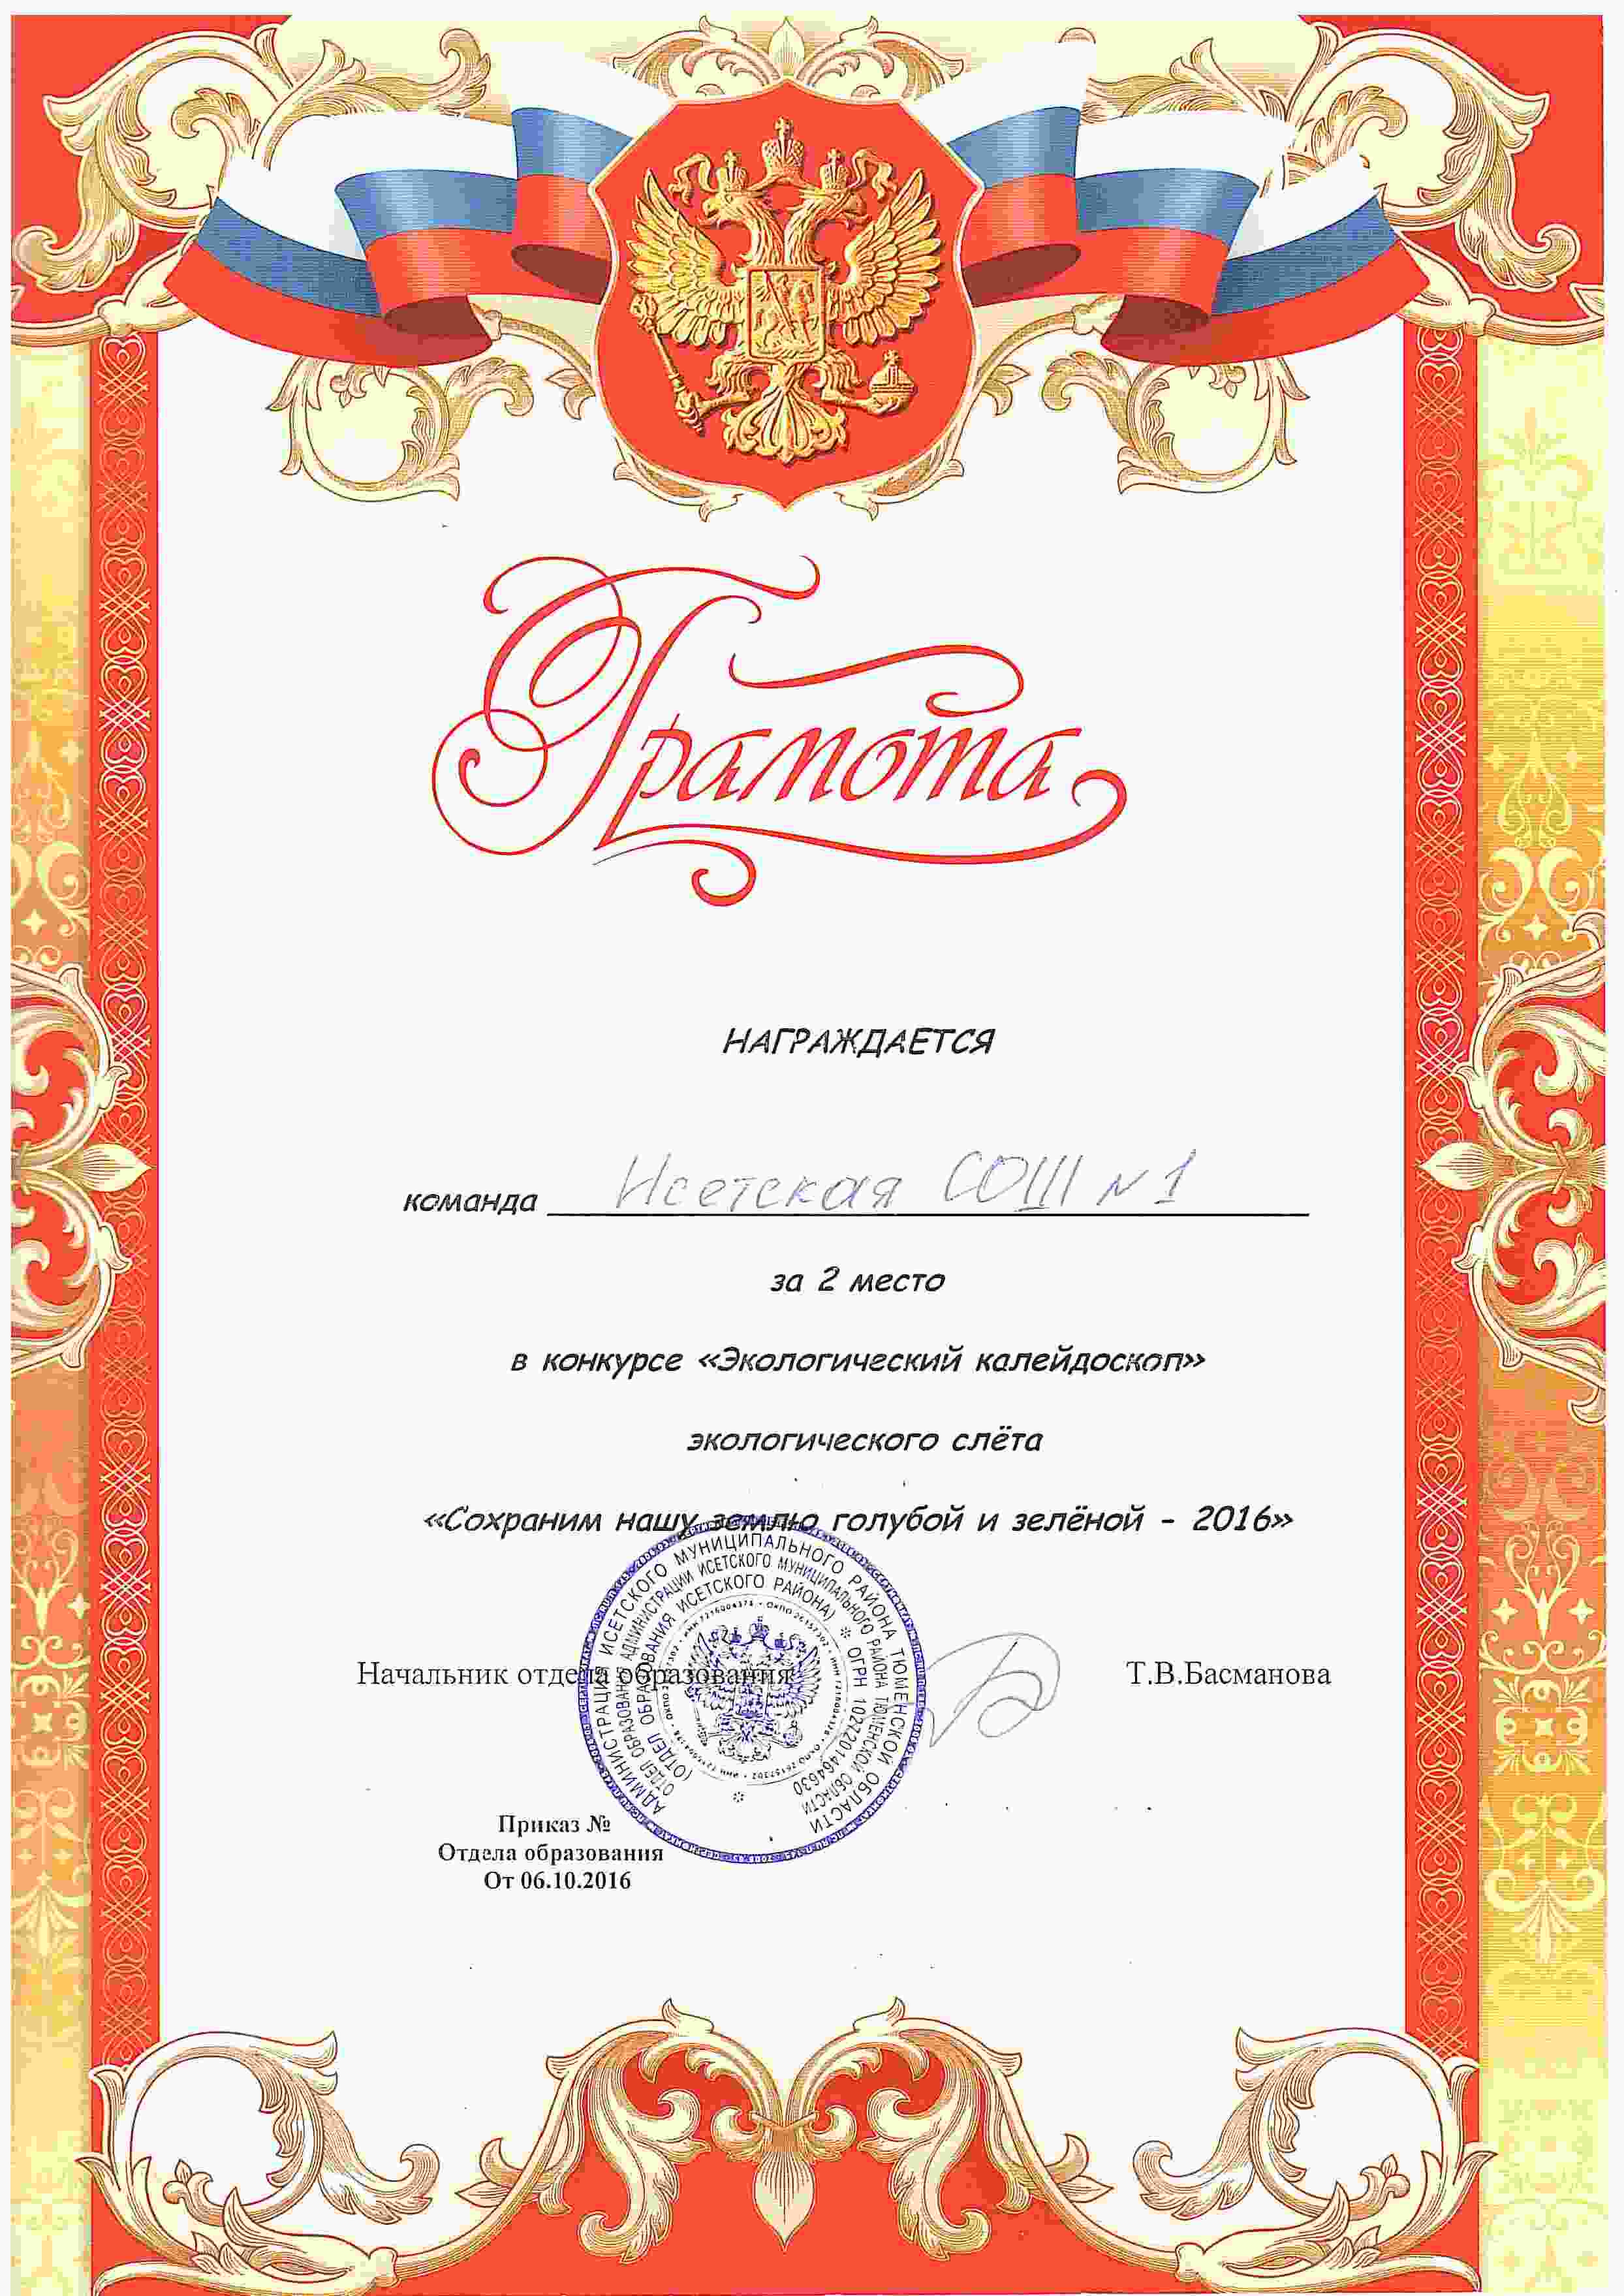 Грамота
НАГРАЖДАЕТСЯ
команда Исетская СОШ №1
за 2 место
в конкурсе «Экологический калейдоскоп»
экологического слёта
«Сохраним нашу землю голубой и зелёной - 2016»
Начальник отдела образования Т.В.Басманова
АДМИНИСТРАЦИЯ ИСЕТСКОГО МУНИЦИПАЛЬНОГО РАЙОНА ТЮМЕНСКОЙ ОБЛАСТИ
ОТДЕЛ ОБРАЗОВАНИЯ АДМИНИСТРАЦИИ ИСЕТСКОГО МУНИЦИПАЛЬНОГО РАЙОНА ТЮМЕНСКОЙ ОБЛАСТИ
(ОТДЕЛ ОБРАЗОВАНИЯ ИСЕТСКОГО РАЙОНА) * ОГРН 1027201464630 *
Приказ №
Отдела образования
От 06.10.2016